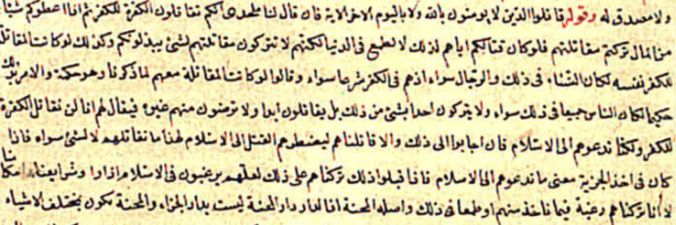 ولا مصدق له وقوله قاتلوا الذين لا يومنون بالله ولا باليوم الاخر الاية فان قال لنا ملحد انكم تقاتلون الكفرة للكفر ثم اذا اعطوكم شيئا
من المال تركتم مقاتلتهم فلو كان قتالكم اياهم لذلك لا لطمع في الدنيا لكنتم لا تتركون مقاتلتهم لشئ يبذلونكم وكذلك لو كانت المقاتلة
للكفر نفسه لكان النساء في ذلك والرجال سواء اذ هم في الكفر شرعا سواء وقالوا لو كانت المقاتلة معهم لما ذكرنا وهو حكمة والامر بذلك
حكيما لكان الناس جميعا في ذلك سواء ولا يتركون احدا بشئ من ذلك بل يقاتلون ابدا ولا ترضون منهم غيره فيقال لهم انا لن نقاتل الكفرة
للكفر ولكنا ندعوهم الى الاسلام فان اجابوا الى ذلك والا قاتلناهم ليضطرهم القتل الى الاسلام لهذا ما نقاتلهم لا لشئ سواه فاذا
كان في اخذ الجزية معنى ما ندعوهم الى الاسلام فاذا قبلوا ذلك تركناهم على ذلك لعلهم يرغبون في الاسلام اذا راوا وشرايعنا واحكامنا
لا انا تركناهم رغبة فيما ناخذ منهم او طمعا في ذلك واصله المحنة اذ الدار دار المحنة ليست بدار الجزاء والمحنة تكون بمختلف الاشياء